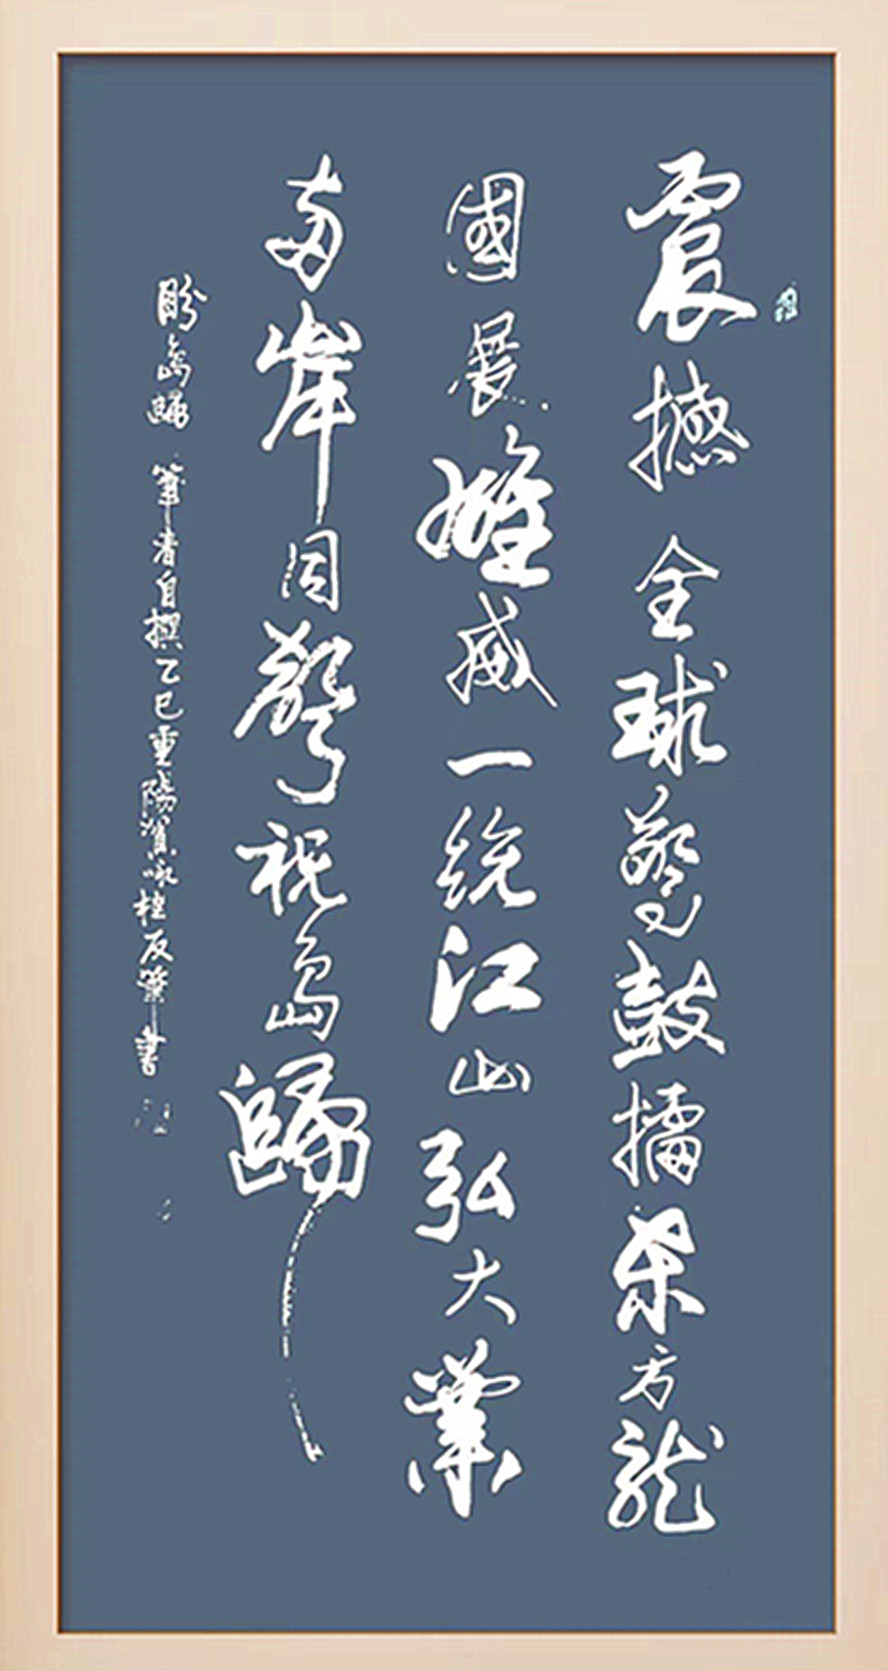 震撼全球聲鼓擂東方龍
國展雄威一統江山弘大業
兩岸同聲祝島歸
盼島歸 筆者自撰乙巳重陽咏桂反筆書